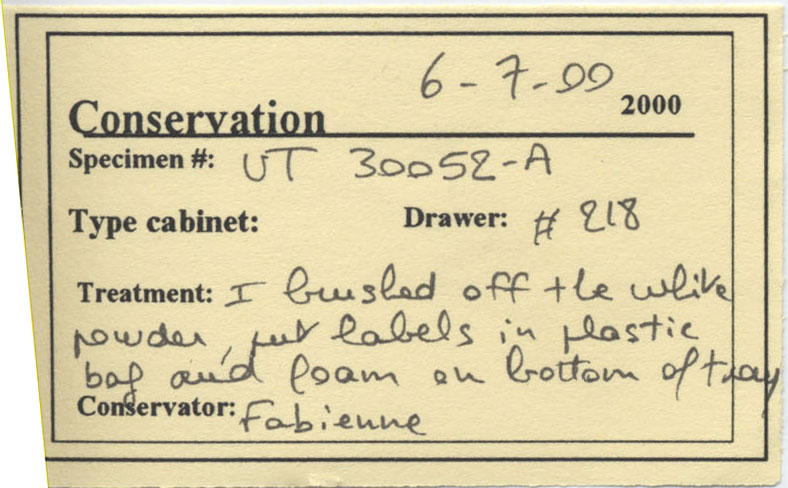 6-7-00
Conservation 2000
Specimen #: UT 30052-A
Type cabinet: Drawer: # 218
Treatment: I brushed off the white
powder, put labels in plastic
bag and foam on bottom of tray
Conservator: Fabienne